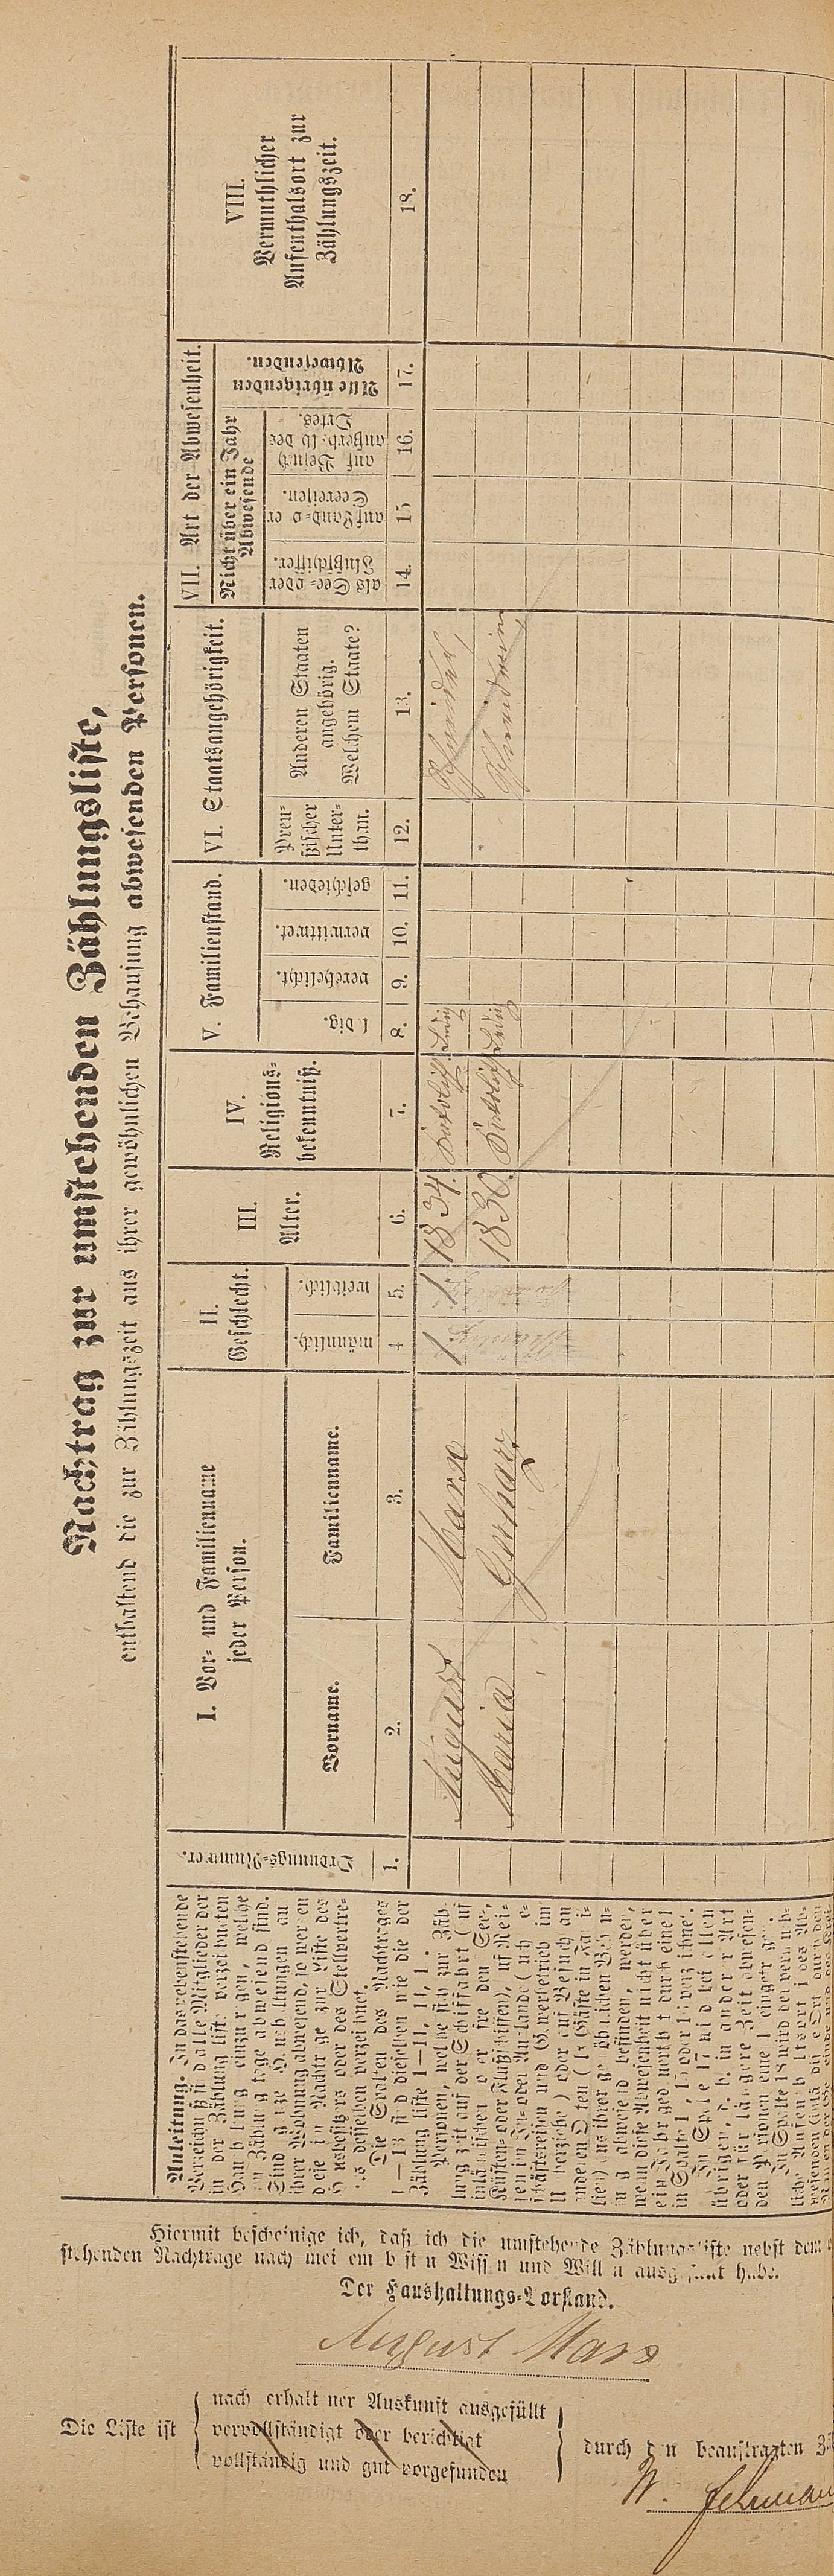 Nachtrag zur umstehenden Zählungsliste,
enthaltend die zur Zählungszeit aus ihrer gewöhnlichen Behausung abwesenden Personen.
Anleitung. In das nebenstehende
Verzeichniß sind alle Mitglieder der
in der Zählungsliste verzeichneten
Haushaltung einzutragen, welche
am Zählungstage abwesend sind.
Sind ganze Haushaltungen aus
ihrer Wohnung abwesend, so werden
diese im Nachtrage zur Liste des
Hausbesitzers oder des Stellvertre-
ters desselben verzeichnet.
Die Spalten des Nachtrages
1—13 sind dieselben wie die der
Zählungsliste
Personen, welche sich zur Zäh-
lungszeit auf der Schifffahrt (auf
inländischen oder fremden See-,
Küsten- oder Flußschiffen), auf Rei-
sen im In- oder Auslande
schäftsreisen und Gewerbebetrieb im
Umherziehen) oder auf Besuch an
anderen Orten (als Gäste in Fami-
lien) aus ihrer gewöhnlichen Behausu-
ng abwesend befinden, werden,
wenn diese Abwesenheit nicht über
ein Jahr gedauert hat durch eine 1
in Spalte 14, 15 oder 16 verzeichnet.
In Spalte 17 wird bei allen
übrigen, d. h. in anderer Art
oder für längere Zeit abwesen-
den Personen eine 1 eingetragen.
In Spalte 18 wird der vermuth-
liche Aufenthaltsort des Ab-
wesenden
Ordnungs-Nummer.
I. Vor- und Familienname
jeder Person.
Vorname.
Familienname.
II.
Geschlecht.
männlich.
weiblich.
III.
Alter.
IV.
Religions-
bekenntniß.
V. Familienstand.
ledig.
verehelicht.
verwittwet.
geschieden.
VI. Staatsangehörigkeit.
Preu-
ßischer
Unter-
than.
Anderen Staaten
angehörig.
Welchem Staate?
VII. Art der Abwesenheit.
Nicht über ein Jahr
Abwesende
als See- oder
Flußschiffer.
auf Land- oder
Seereisen.
auf Besuch
außerhalb des
Ortes.
Alle übrigenden
Abwesenden.
VIII.
Vermuthlicher
Aufenthalsort zur
Zählungszeit.
1. 2. 3. 4 5. 6. 7. 8. 9. 10. 11. 12. 13. 14. 15 16. 17. 18.
August Marx 1. 1. 1834. Katolisch Ledig Schneider,
Maria Gerharz 1830. Katolisch Ledig Schneiderin,
Hiermit bescheinige ich, daß ich die umstehende Zählungsliste nebst dem
stehenden Nachtrage nach meinem besten Wissen und Willen ausgefüllt habe.
Der Haushaltungs-Vorstand.
August Marx
Die Liste ist
nach erhaltener Auskunft ausgefüllt
vervollständigt oder berichtigt
vollständig und gut vorgefunden
durch den beauftragten
W.